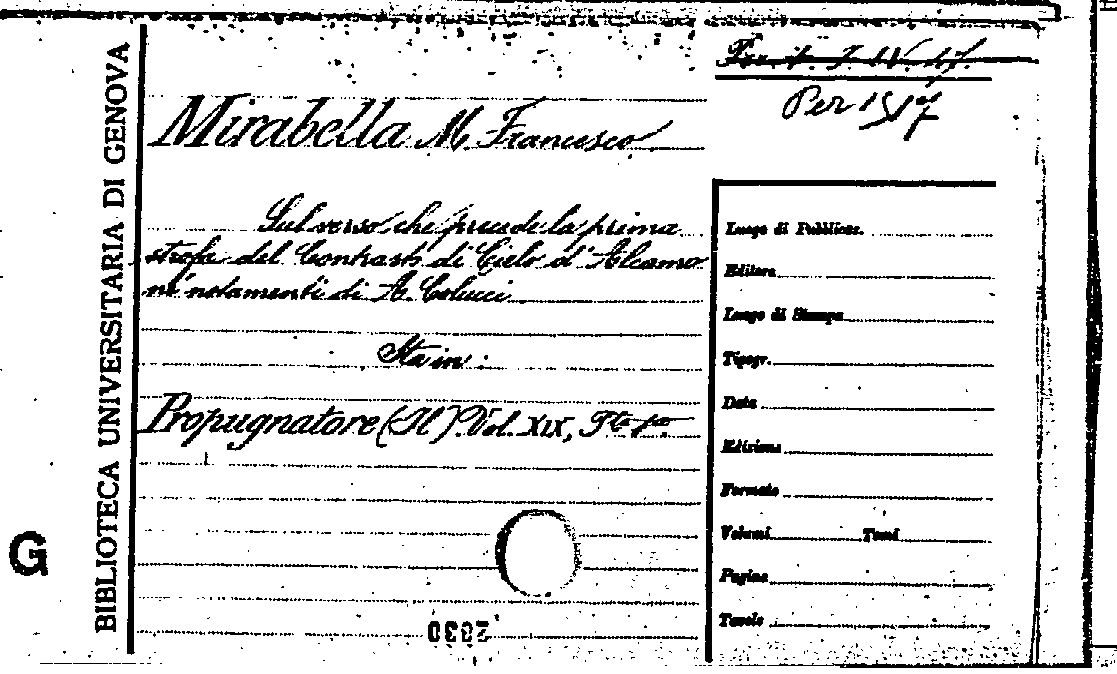 BIBLIOTECA UNIVERSITARIA DI GENOVA
Per 1517
Mirabella M. Francesco
Sul verso che precede la prima
strofa del Contrasto di Cielo d'Alcamo
ne' notamenti di A. Colucci
Sta in:
Propugnatore (Il) Vol. XIX, Pte 1a
Luogo di Pubblicaz.
Editore
Luogo di Stampa
Tipogr.
Data
Edizione
Formato
Volumi Tomi
Pagine
Tavole
G
2030